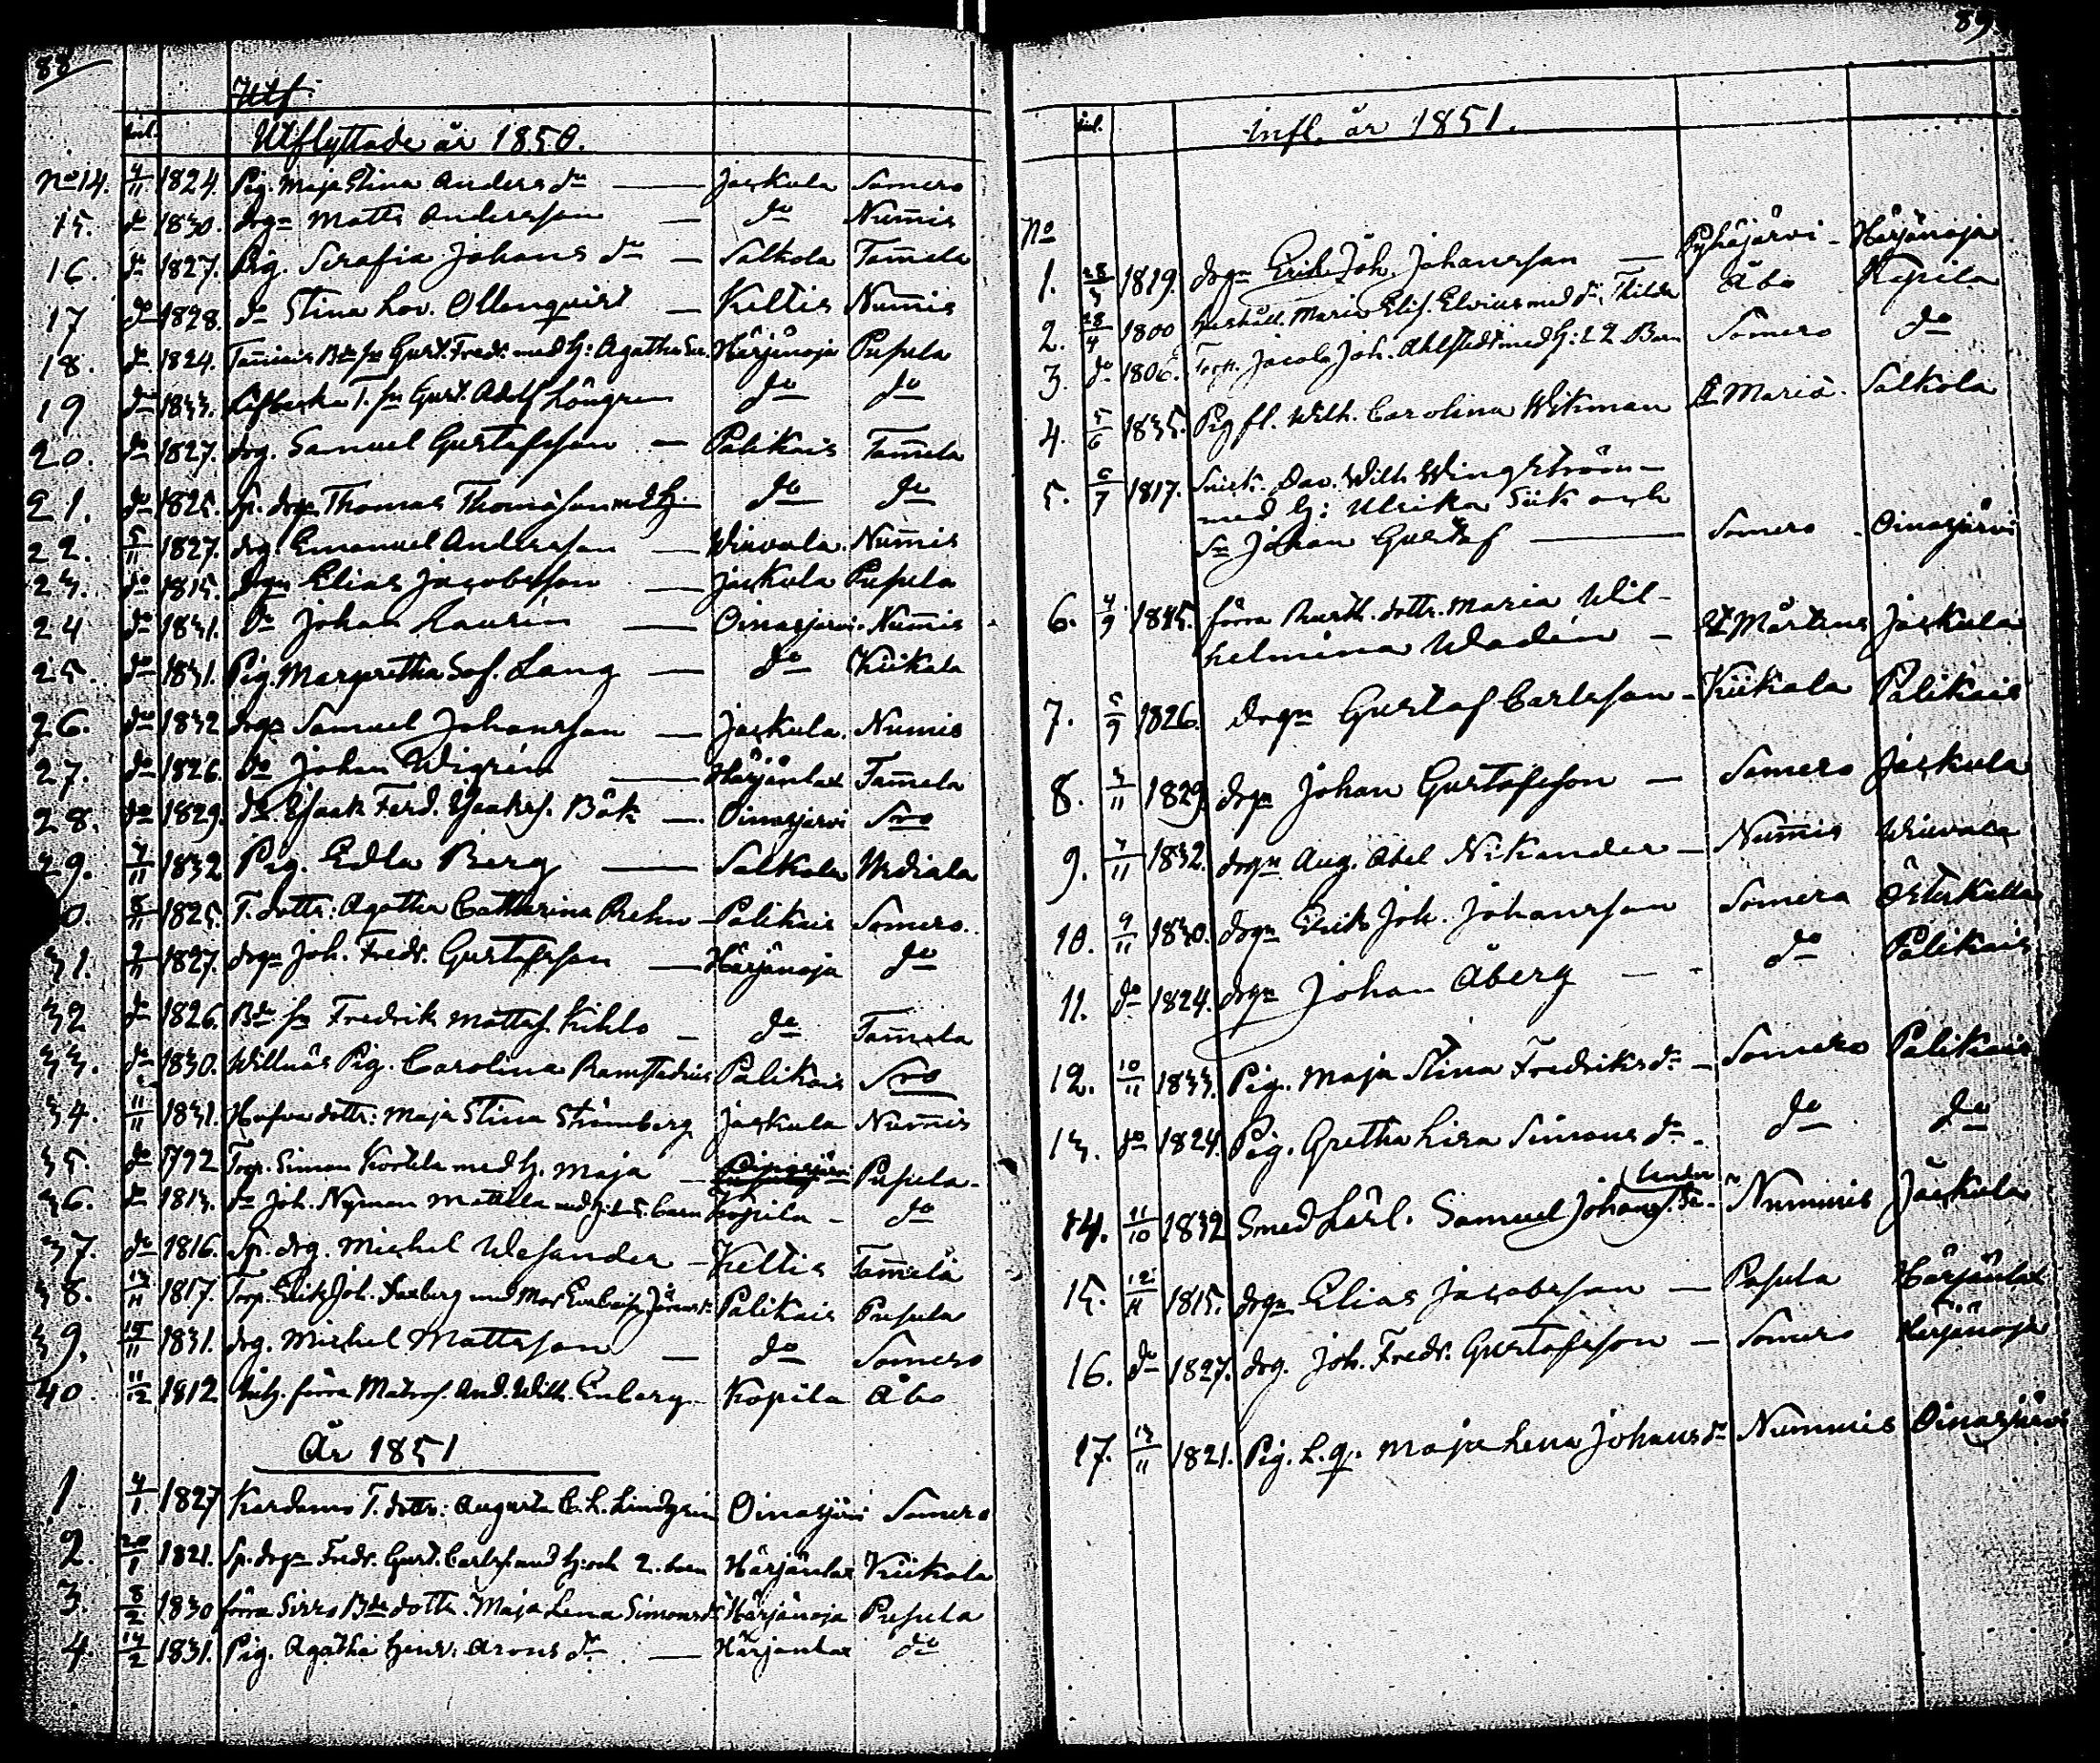 88
Utf:
Utflyttade år 1850.
No 14. 4/11 1824. Pig. Maja Stina Anders dr — Jaskula Somero
15. do 1830. drgn Matts Andersson — do Num̅is
16. do 1827. Pig. Serafia Johans dr — Salkola Tam̅ela
17 do 1828. do Stina Lov. Ollonqvist — Keltis Num̅is
18. do 1824. Bde sn Gust. Fredr. med h: Agatha Härjänoja Pusula
19 do 1833. T. sn Gust. Adolf Löngren do do
20. do 1827. drg. Samuel Gustafsson — Palikais Tam̅ela
21. do 1825. Sp. drgn Thomas Thomasson med h. do do
22. 5/11 1827. drg. Emanuel Andersson — Wiuvala Num̅is
23. do 1815. drgn Elias Jacobsson — Jaskula Pusula
24 do 1831. do Johan Laurin — Oinasjärvi Num̅is
25. do 1831. Pig. Margretha Sof. Lang — do Kiikala
26. do 1832 drgn Samuel Johansson — Jaskula. Numis
27. do 1826. do Johan Wigrén — Härjänlax Tam̅ela
28. do 1829. do Isaak Ferd. Isaakss. Bök — Oinasjärvi Sro
29. 7/11 1832 Pig. Edla Berg — Salkola Urdiala
0. 8/11 1825. T. dottr: Agatha Catharina Rehn — Palikais Somero.
31. 9/11 1827. drgn Joh. Fredr. Gustafsson — Härjänoja do
32 do 1826. Bde sn Fredrik Mattss. Kihlo — do Tam̅ela
33. do 1830. Willnäs Pig. Carolina Ramstadius Palikais Sro
34. 11/11 1831. dottr: Maja Stina Strömberg Jaskula Num̅is
35. do 1792 Torp. Simon Korkla med h. Maja — Pusula.
36. do 1813. do Joh. Nyman Mattila med h. & 5. barn Kopila — do
37. do 1816. Sp. drg. Michel Wesander — Keltis Tam̅ela
38. 13/11 1817. Torp. Erik Joh. med Palikais Pusula
39. 15/11 1831. drg. Michel Mattsson — do Somero
40. 11/12 1812 förra Matros. And. Wilh. Enberg Kopila Åbo
År 1851
1. 4/1 1827 Kardamo T. dottr: Augusta C. L. Lindgrén Oinasjärvi Somero
2. 20/1 1821. Sp. drgn Fredr. Gust. Carlss. med h: och 2. barn Härjänlax Kiikala
3. 8/2 1830 förra Sirro Bde dottr. Maja Lena Simonsdr Härjänoja Pusula
4. 14/2 1831. Pig. Agatha Henr: Arons dr. — Härjänlax do
89.
Infl. år 1851.
No
1. 28/3 1819. drgn Erik Joh. Johansson — Pyhäjärvi — Härjänoja
2. 28/4 1800 Hushåll. Maria Elis. Elvius med dr. Thilda Åbo Kopila
3. do 1806. Torp. Jacob Joh. Ahlstedt med h: & 2 Barn Somero do
4. 5/6 1835. Pig fl. Wilh. Carolina Wikman St Mariæ. Salkola
5. 6/7 1817. Snick. Dav. Wilh. Wingström —
med h: Ulrika Siik och
Sn Johan Gustaf — Somero . Oinasjärvi
6. 4/9 1815. förra Rusth. dottr. Maria Wil-
helmina Wadén — St Mårtens Jaskula
7. 5/9 1826. drgn Gustaf Carlsson — Kiikala Palikais
8. 3/11 1829 drgn Johan Gustafsson — Somero Jaskula
9. 7/11 1832. drgn Aug. Abel Nikander — Num̅is Wiuvala
10. 9/11 1830. drgn Erik Joh. Johansson Somero Österkulla
11. do 1824. drgn Johan Åberg — do Palikais
12. 10/11 1833. Pig. Maja Stina Fredriks dr — Somero Palikais
13. do 1824. Pig. Gretha Lisa Simons dr — do do
14. 11/10 1832 Smed Lärl. Samuel Johans. Sn. Nummis Jaskula
15. 12/11 1815. drgn Elias Jacobsson — Pusula Härjänlax
16. do 1827. drg. Joh. Fredr. Gustafsson — Somero Härjänoja
17. 13/11 1821. Pig. L. q. Maja Lena Johans dr Nummis Oinasjärvi